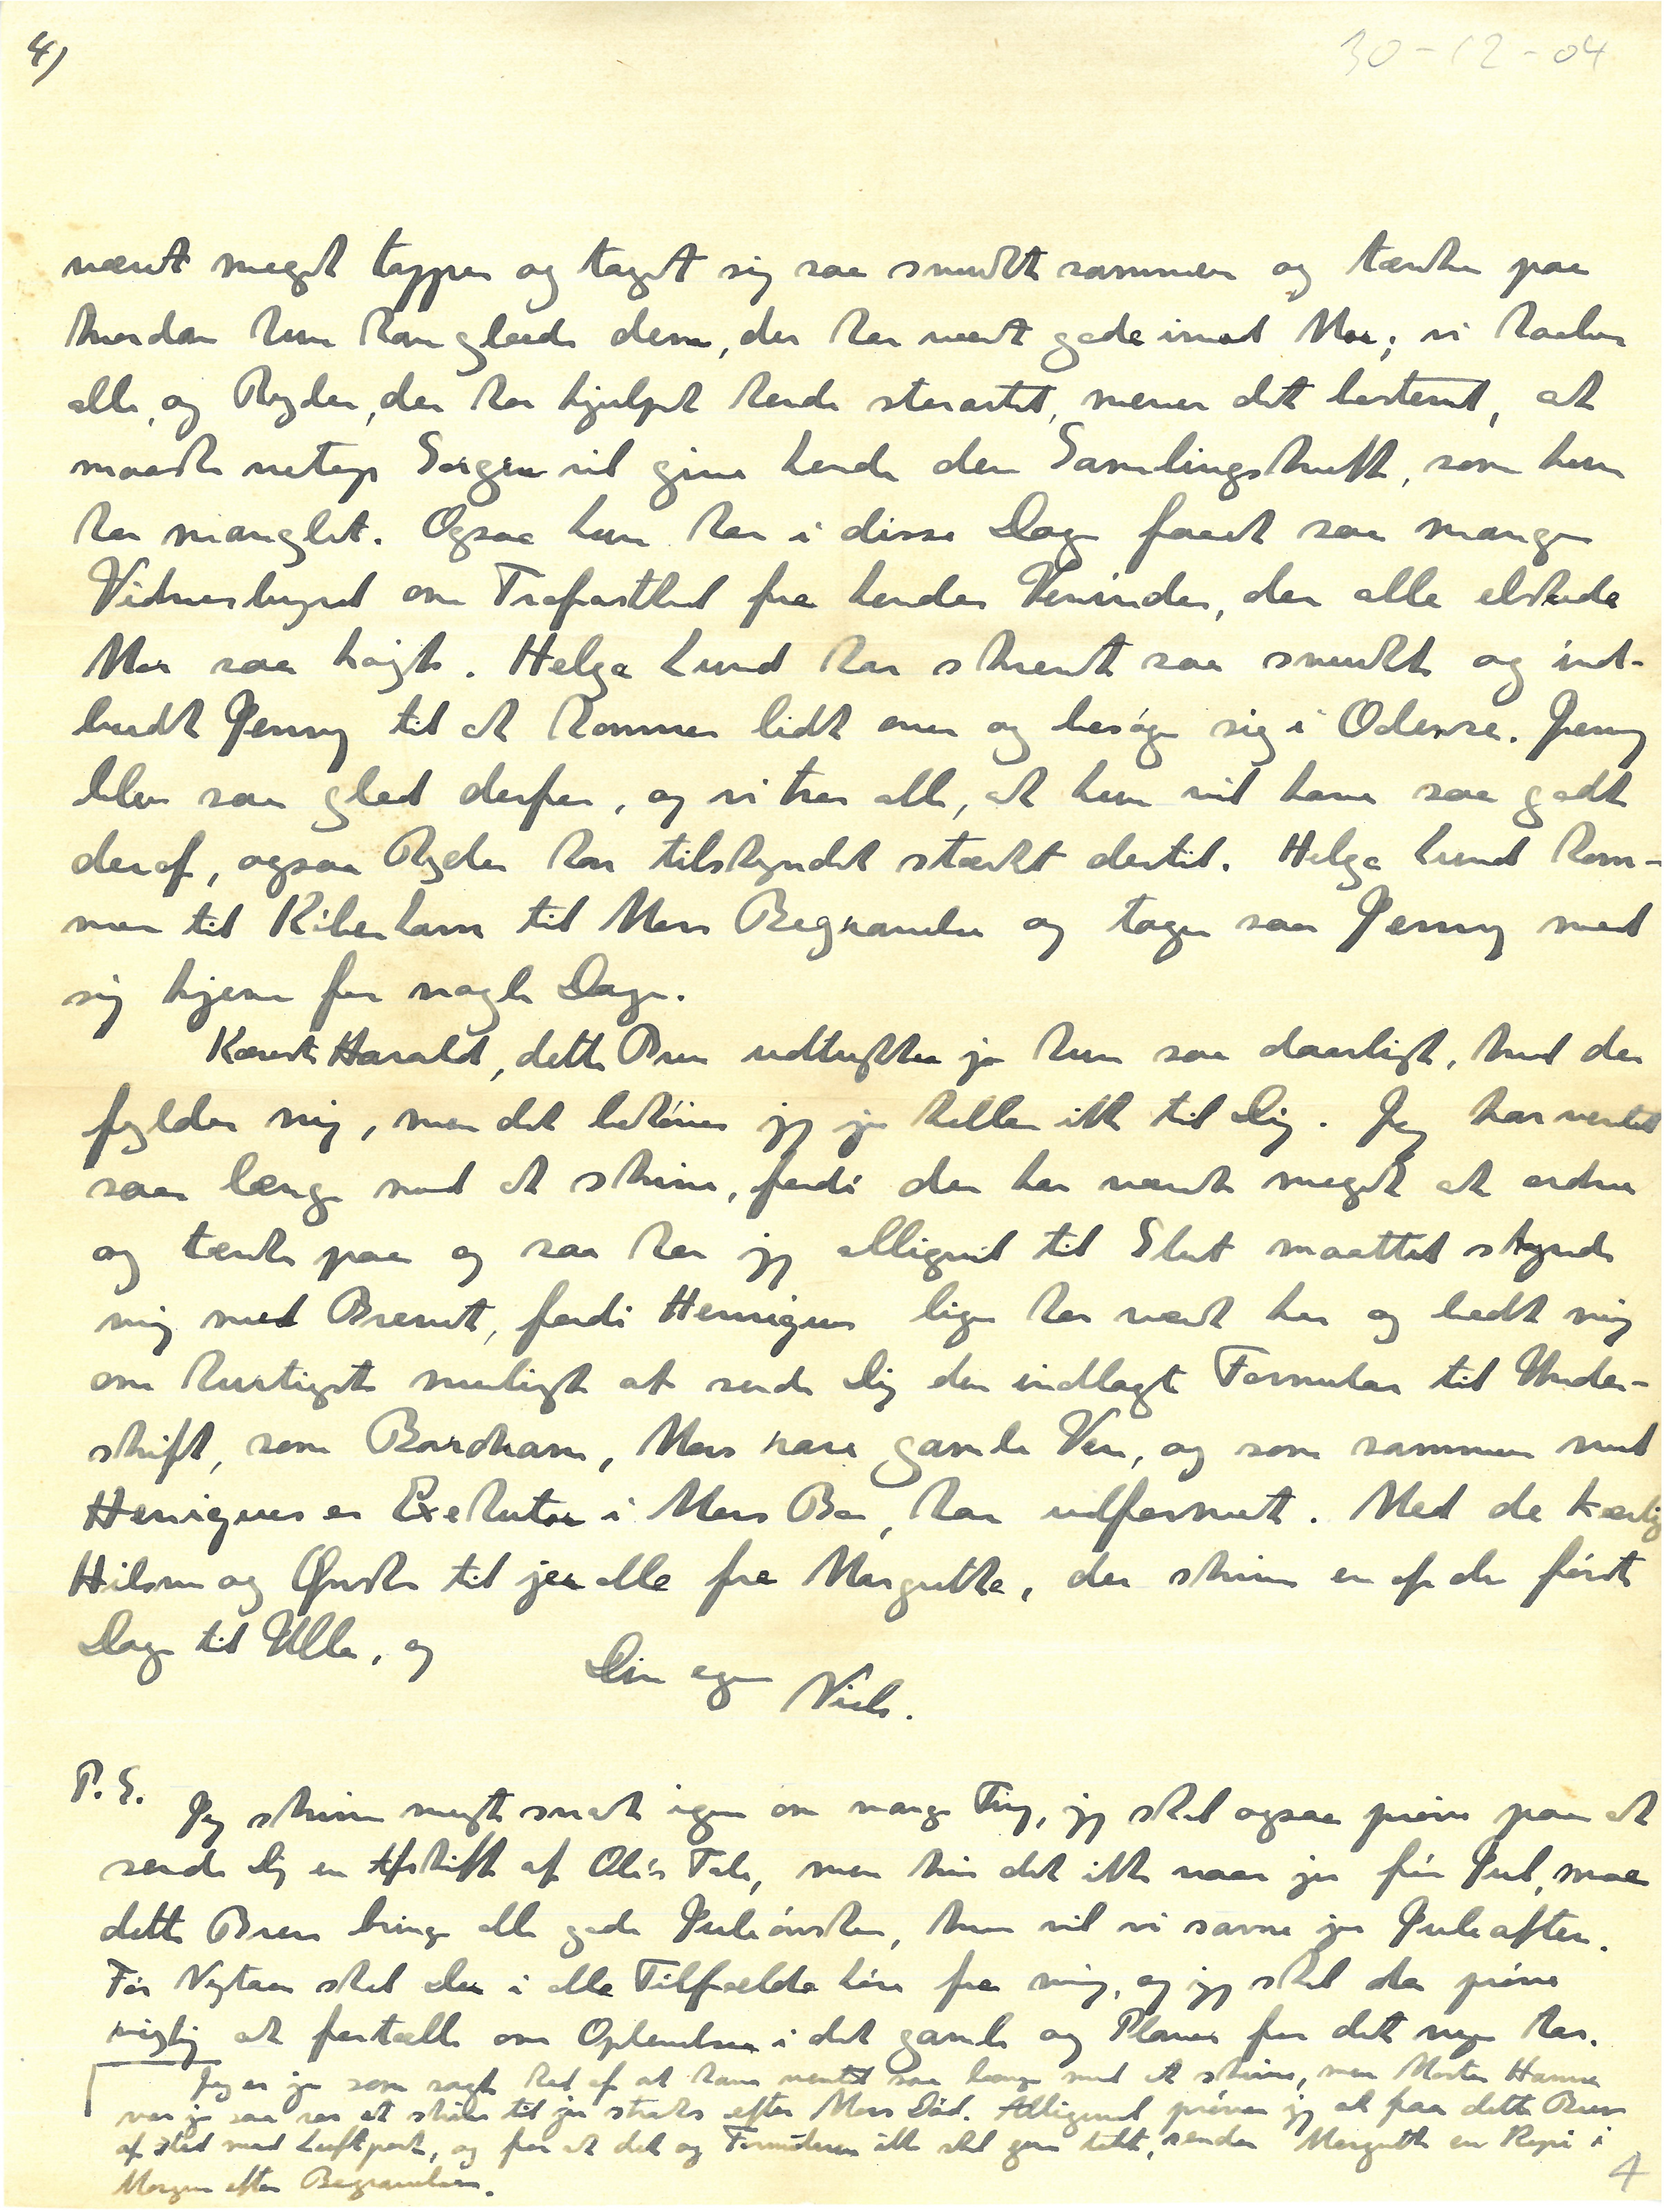 4)
30-12-04
været meget tapper og taget sig saa smukt sammen og tænker paa
hvordan hun kan glæde dem, der har været gode imod Mor; vi haaber
alle, og Ryder, der har hjulpet hende storartet, mener det bestemt, at
maaske netop Sorgen vil give hende den Samlingskraft, som hun
har manglet. Ogsaa hun har i disse Dage faaet saa mange
Vidnesbyrd om Trofasthed fra hendes Veninder, der alle elskede
Mor saa højt. Helga Lund har skrevet saa smukt og ind-
budt Jenny til at komme lidt over og besøge sig i Odense. Jenny
blev saa glad derfor, og vi tror alle, at hun vil have saa godt
deraf, ogsaa Ryder har tilskyndet stærkt dertil. Helga Lund kom-
mer til København til Mors Begravelse og tager saa Jenny med
sig hjem for nogle Dage.
Kæreste Harald, dette Brev udtrykker jo kun saa daarligt, hvad der
fylder mig, men det behøver jeg jo heller ikke til Dig. Jeg har ventet
saa længe med at skrive, fordi der har været meget at ordne
og tænke paa og saa har jeg alligevel til Slut maattet skynde
mig med Brevet, fordi Henriques lige har været her og bedt mig
om hurtigst muligt at sende Dig den indlagte Formular til Under-
skrift, som Bardram, Mors rare gamle Ven, og som sammen med
Henriques er Exekutor i Mors Bo, har udformet. Med de kærlig
Hilsner og Ønsker til jer alle fra Margrethe, der skriver en af de første
Dage til Ulla, og
Din egen Niels.
P.S.
Jeg skriver meget snart igen om mange Ting, jeg skal ogsaa prøve paa at
sende Dig en Afskrift af Ole's Tale, men hvis det ikke naar jer før Jul, maa
dette Brev bringe alle gode Juleønsker, hvor vil vi savne jer Juleaften.
Før Nytaar skal Du i alle Tilfælde høre fra mig, og jeg skal da prøve
rigtig at fortælle om Oplevelser i det gamle og Planer for det nye Aar.
Jeg er jo som sagt ked af at have ventet saa længe med at skrive, men Moster Hanna
var jo saa rar at skrive til jer straks efter Mors Død. Alligevel prøver jeg at faa dette Brev
af sted med Luftpost, og for at det og Formularen ikke skal gaa tabt, sender Margrethe en Kopi i
Morgen efter Begravelsen.
4